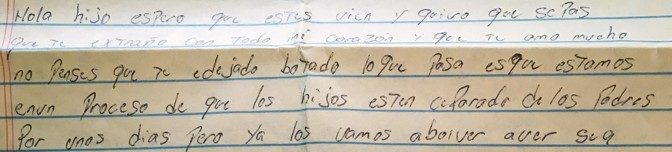 Hola hijo espero que estes vien y quiero que sepas
que te extraño con todo mi corazon y que te amo mucho
no Penses que te edejado botado lo que Pasa es que estamos
enun Proceso de que los hijos esten ceparado de los Padres
Por unos dias Pero ya los vamos abolver aver